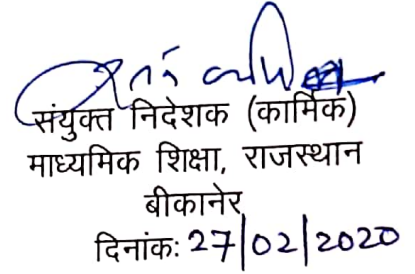 संयुक्त निदेशक (कार्मिक)
माध्यमिक शिक्षा, राजस्थान
बीकानेर
दिनांक: 27/02/2020